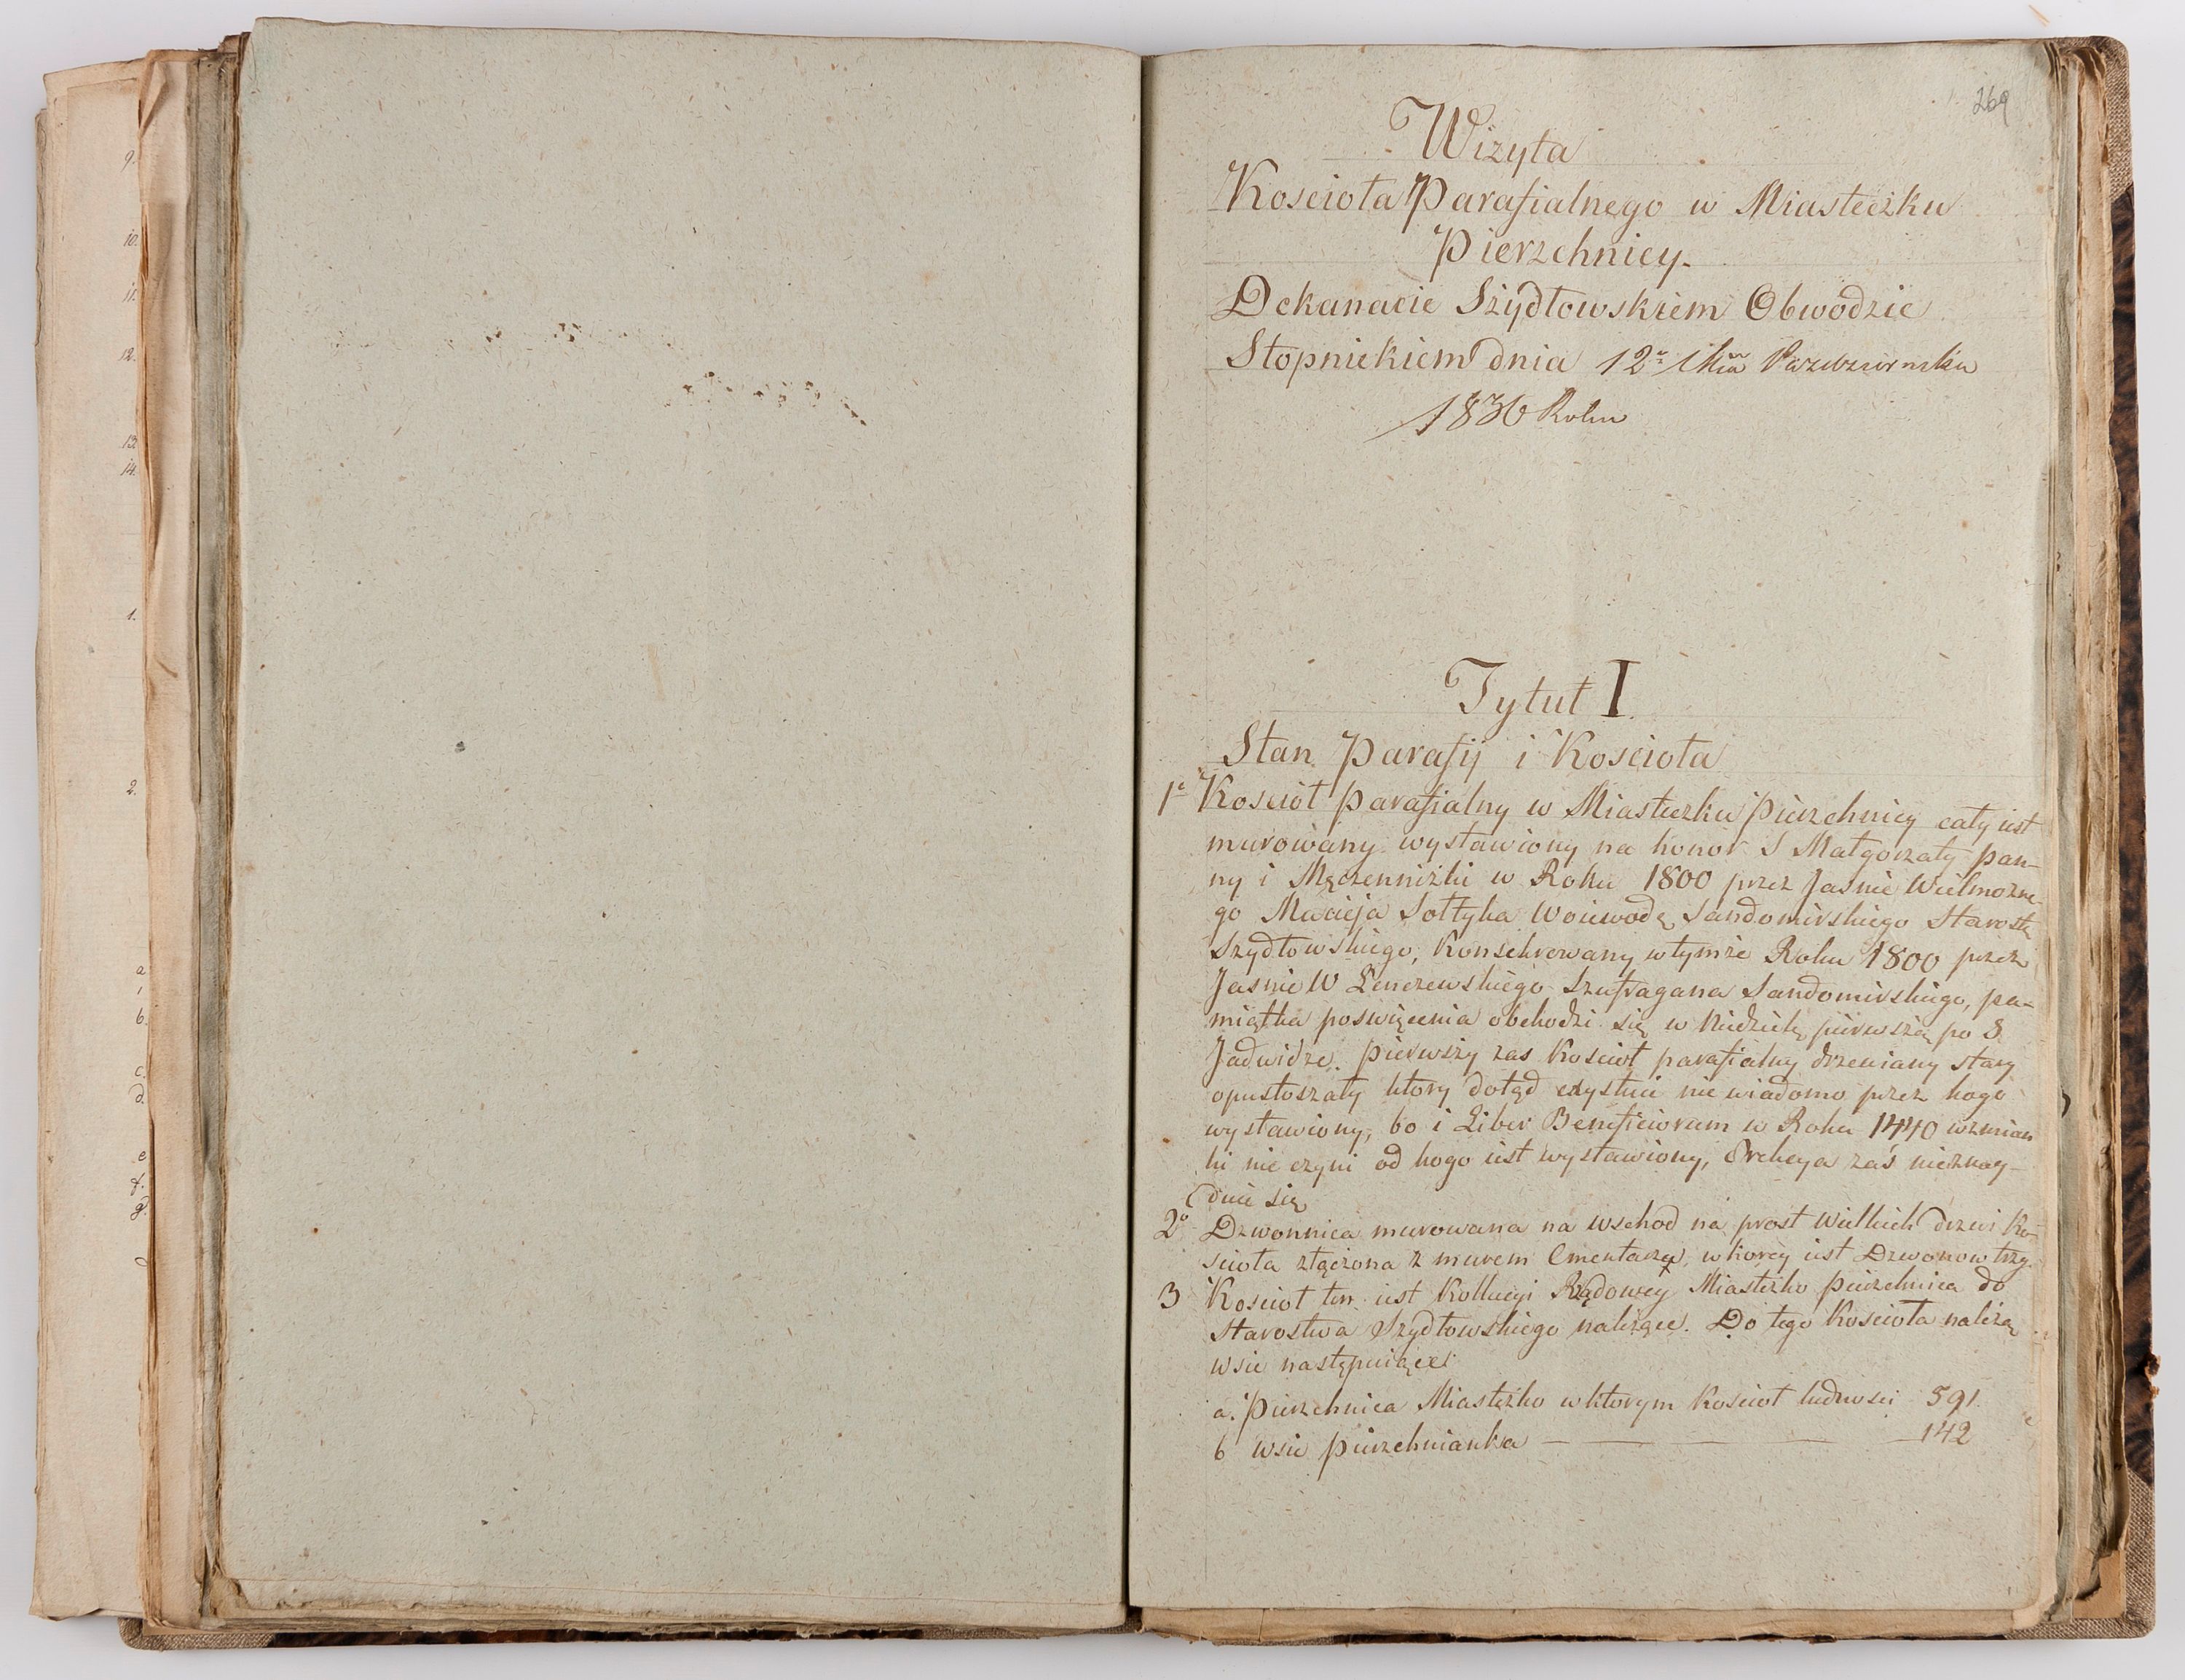 9.
10.
11.
12.
13.
14.
1.
2.
a
b.
c.
d.
e
f.
g.
269
Wizyta
Koscioła Parafialnego w Miasteczku
Pierzchnicy.
Dekanacie Szydłowskiem Obwodzie
Stopnickiem dnia 12º Pazdziernika
1830 Roku
Tytuł I.
Stan Parafij i Koscioła
1º Kosciół parafialny w Miasteczku Pierzchnicy cały iest
murowany wystawiony na honor S Małgorzaty pan-
ny i Męczenniżki w Roku 1800 przez Jasnie Wielmożne-
go Macieja Sołtyka Woiewodę Sandomirskiego Starostę
Szydłowskiego, Konsekrowany w tymże Roku 1800 przez
Jasnie W Lenczewskiego Szufragana Sandomirskiego, pa-
miątka poswięcenia obchodzi się w Niedzielę pierwszą po S.
Jadwidze. Pierwszy zas Kosciół parafialny drzewiany stary
opustoszały ktory dotąd exystuie nie wiadomo przez kogo
wystawiony, bo i Liber Beneficiorum w Roku 1440 wzmian
ki nie czyni od kogo iest wystawiony, Erekcya zaś nieznay-
duie się
2º Dzwonnica murowana na wschod na prost Wielkich drzwi Ko-
scioła złączona z murem Cmentarza, w ktorey iest Dzwonow trzy.
3 Kosciół ten iest Kollacyi Rządowey Miasteżko Pierzchnica do
Starostwa Szydłowskiego należące. Do tego Kosciola należą
wsie następuiące:
a. Pierzchnica Miasteżko w ktorym Kosciół ludnosci 591.
b wsie Pierzchnianka — — — — 142